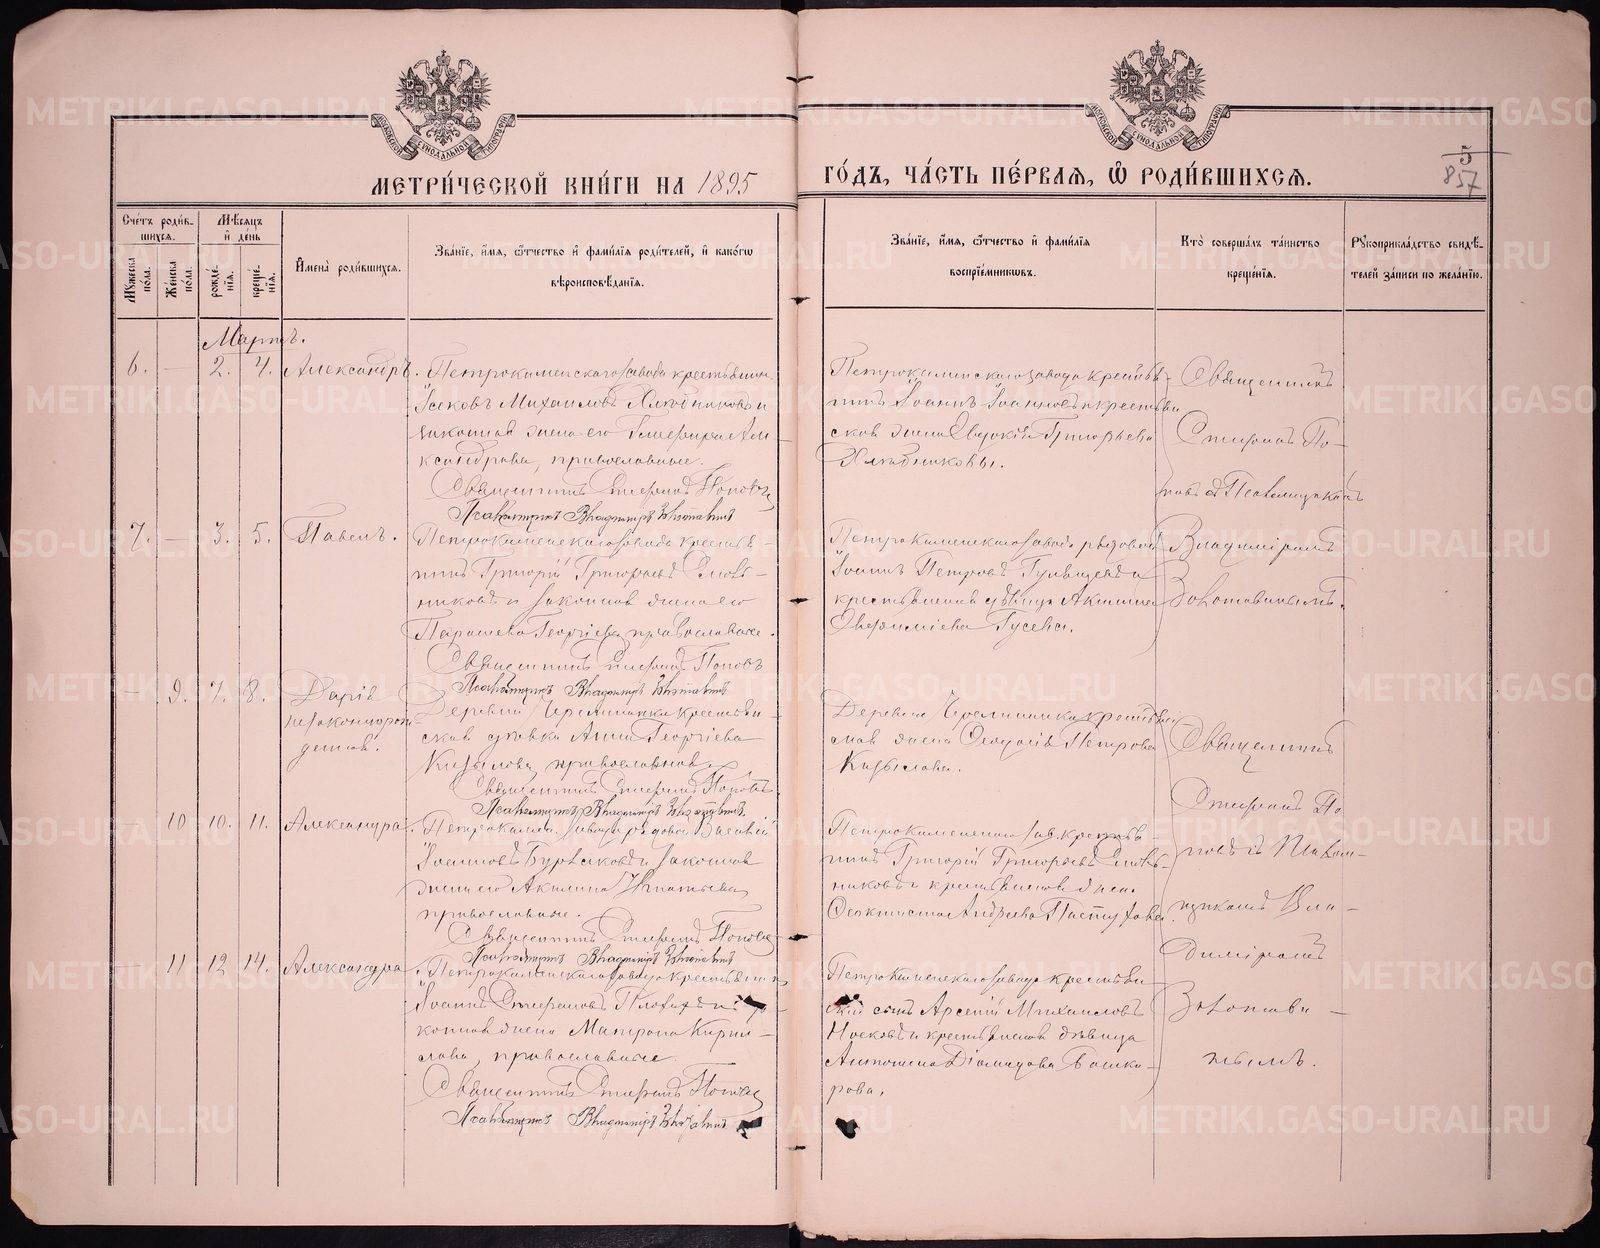 МЕТРИ́ЧЕСКОЙ КНИ́ГИ НА 1895
ГО́ДЪ, ЧА́СТЬ ПЕ́РВАЯ, Ѡ РОДИ́ВШИХСЯ.
5
857
Сче́тъ роди́в-
шихся.
Мѣ́сяцъ
и҆ де́нь
Мꙋ́жеска по́ла.
Же́нска по́ла.
рожде́-
нїя.
креще́-
нїя.
И҆мена̀ роди́вшихся.
Зва́нїе, и҆́мя, ѻ҆́тчество и҆ фами́лїя роди́телей, и҆ како́гѡ
вѣроисповѣ́данїя.
Зва́нїе, и҆́мя, ѻ҆́тчество и҆ фами́лїя
воспрїе́мникѡвъ.
Кто̀ соверша́лъ та́инство
креще́нїя.
Рꙋкоприкла́дство свидѣ́-
телей за́писи по жела́нїю.
Мартъ.
6. — 2. 4. Александръ.
Петрокаменскаго завода крестьянин
Іаковъ Михаиловъ Хлѣбниковъ и
законная жена его Але-
ксандрова, православные.
Священникъ Стефанъ Поповъ
Псаломщикъ Владиміръ
Петрокаменскаго завода крестья-
нинъ Іоаннъ Іоанновъ и крестьян
ская жена Евдокія Григорьева
Хлѣбниковы.
Священникъ
Стефанъ По-
повъ съ Псаломщикомъ
7. — 3. 5. Павелъ.
Петрокаменскаго завода крестья-
нинъ Григорій Григорьевъ
никовъ и законная жена его
Параскева Георгіева, православные.
Священникъ Стефанъ Поповъ
Псаломщикъ Владиміръ
Петрокаменскаго завода рядовой
Іоаннъ Петровъ и
крестьянская дѣвица Акилина
Евфиміева Гусева.
Владиміромъ
— 9. 7. 8. Дарія
незаконнорож-
денная.
Деревни Черемшанки крестьян-
ская дѣвка Анна Георгіева
Кизылова, православная.
Священникъ Стефанъ Поповъ
Псаломщикъ Владиміръ
Деревни Черемшанки крестьян
ская жена Ѳеодосія Петрова
Кизылова.
Священникъ
Стефанъ По
повъ съ Псалом-
щикомъ Вла-
диміромъ
— 10 10. 11. Александра.
Петрокамен. завода рядовой
Іоанновъ и законная
жена его Акилина Игнатьева,
православные.
Священникъ Стефанъ Поповъ
Псаломщикъ Владиміръ
Петрокаменскаго зав. крестья-
нинъ Григорій Григорьевъ
никовъ и крестьянская жена
Ѳеоктиста Андреева Пастухова.
11 12 14. Александра
Петрокаменскаго завода крестьянинъ
Іоаннъ Стефановъ и за-
конная жена Матрона Кирил-
лова, православные.
Священникъ Стефанъ Поповъ
Псаломщикъ Владиміръ
Петрокаменскаго завода крестьян
скій сынъ Арсеній Михаиловъ
Носковъ и крестьянская дѣвица
Антонина Діомидова Башки-
рова.
METRIKI.GASO-URAL.RU